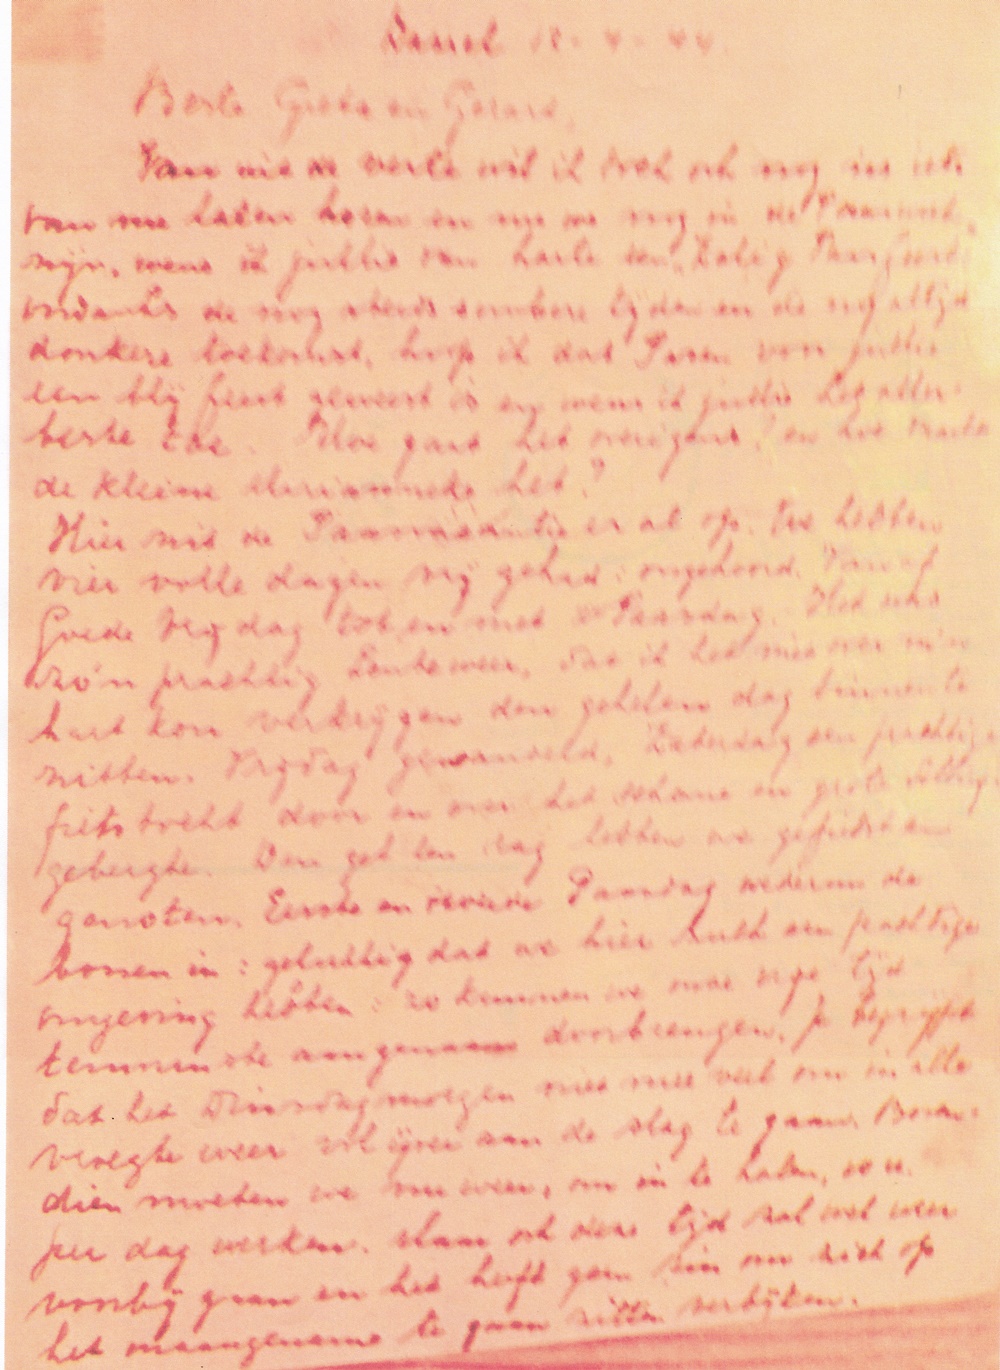 Kassel 12-4-44
Beste Greta en Gerard,
Van uit de verte wil ik toch ook nog iets
van me laten horen en nu we nog in de Paasweek
zijn, wens ik jullie van harte een Zalig Paasfeest
ondanks de nog steeds sombere tijden en de nog altijd
donkere toekomst, hoop ik dat Pasen voor jullie
een blij feest geweest is en wens ik jullie het aller-
beste toe. Hoe gaat het overigens? en hoe maakt
de kleine Marianneke het?
Hier zit de Paasvacantie er al op. We hebben
vier volle dagen vrij gehad: ongehoord. Vanaf
Goede Vrijdag tot en met 2e Paasdag. Het was
zo'n prachtig Lenteweer, dat ik het niet over m'n
hart kon verkrijgen den gehelen dag binnen te
zitten. Vrijdag gewandeld, Zaterdag een prachtige
fietstocht door en over het schone en grote
gebergte. Den gehelen dag hebben we gefietst en
genoten. Eerste en tweede Paasdag wederom de
bossen in: gelukkig dat we hier zulk een prachtige
omgeving hebben: zo kunnen we onze vrije tijd
tenminste aangenaam doorbrengen. Je begrijpt
dat het Dinsdagmorgen niet mee viel om in alle
vroegte weer vol ijver aan de slag te gaan. Boven-
dien moeten we nu weer, om in te halen, u.
per dag werken. Maar ook deze tijd zal wel weer
voorbij gaan en het heeft geen zin om zich op
het onaangename te gaan zitten verbijten.